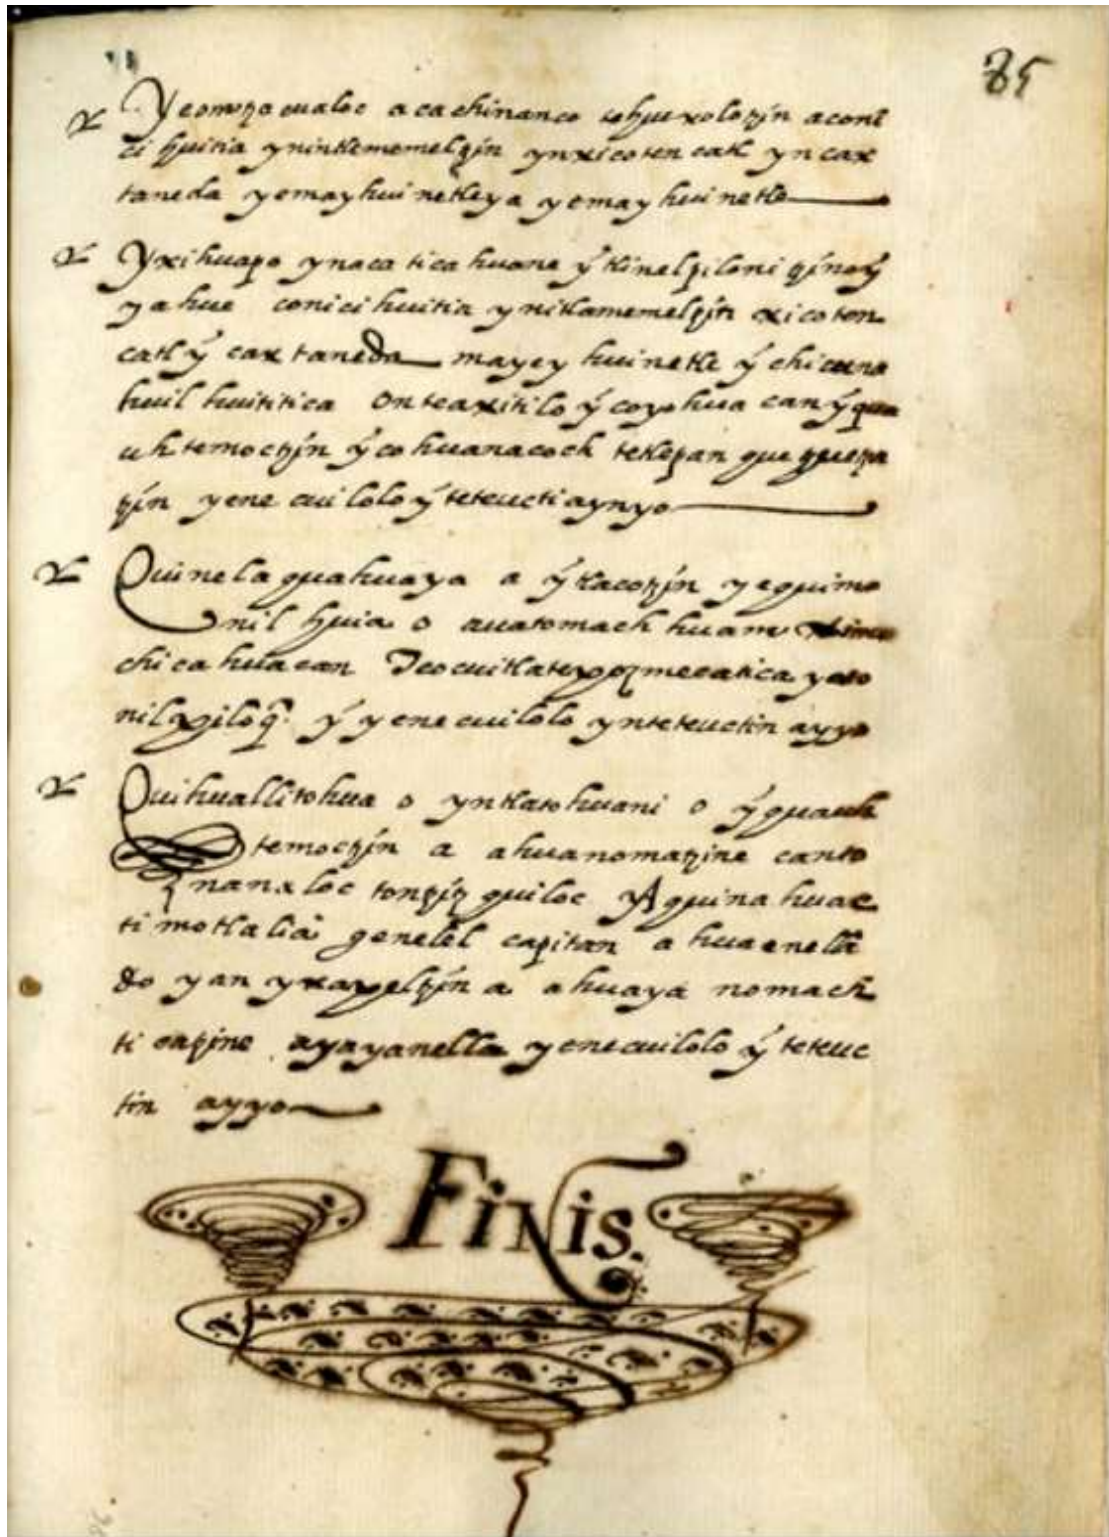 85
Yeomozocualoc acachinanco tohuexolotzin acont
ci huitia ynintlememeltzin ynxicotencatl yn cax
taneda yemayhui netleya yemayhui netle
Yxihuapo ynacaticahuane ỹtlinelpiloni tzinoỹ
yahue conicihuitia ynitlamemeltzin xicoton
catl ỹ caxtaneda mayey huinetle ỹ chicuna
huilhuititica onteaxitilo ỹ coyohuacan ỹ qua
uhtemoctzin ỹ cohuanacoch tetlepanquequeza
tzin yenecuilolo ỹ teteucti aynyo
Quinelaquahuaya a ỹ tlacotzin yequimo
nilhuia o auatomachhuane
chicahuacan Teocuitlatepozmecatica yoto
nilpiloq̃. ỹ yenecuilolo ynteteuctin ayyo
Quihuallitohua o yntlatohuani o ỹ quauh
temoctzin a ahuanomatzine canto
nanaloc tontzitzquiloc Aquinahuac
timotlalia genelel capitan ahuaenella
do yan yxapeltzin a ahuaya nomach
ticatzine ayayanella yenecuilolo ỹ teteuc
tin ayyo
FiNis.
86.